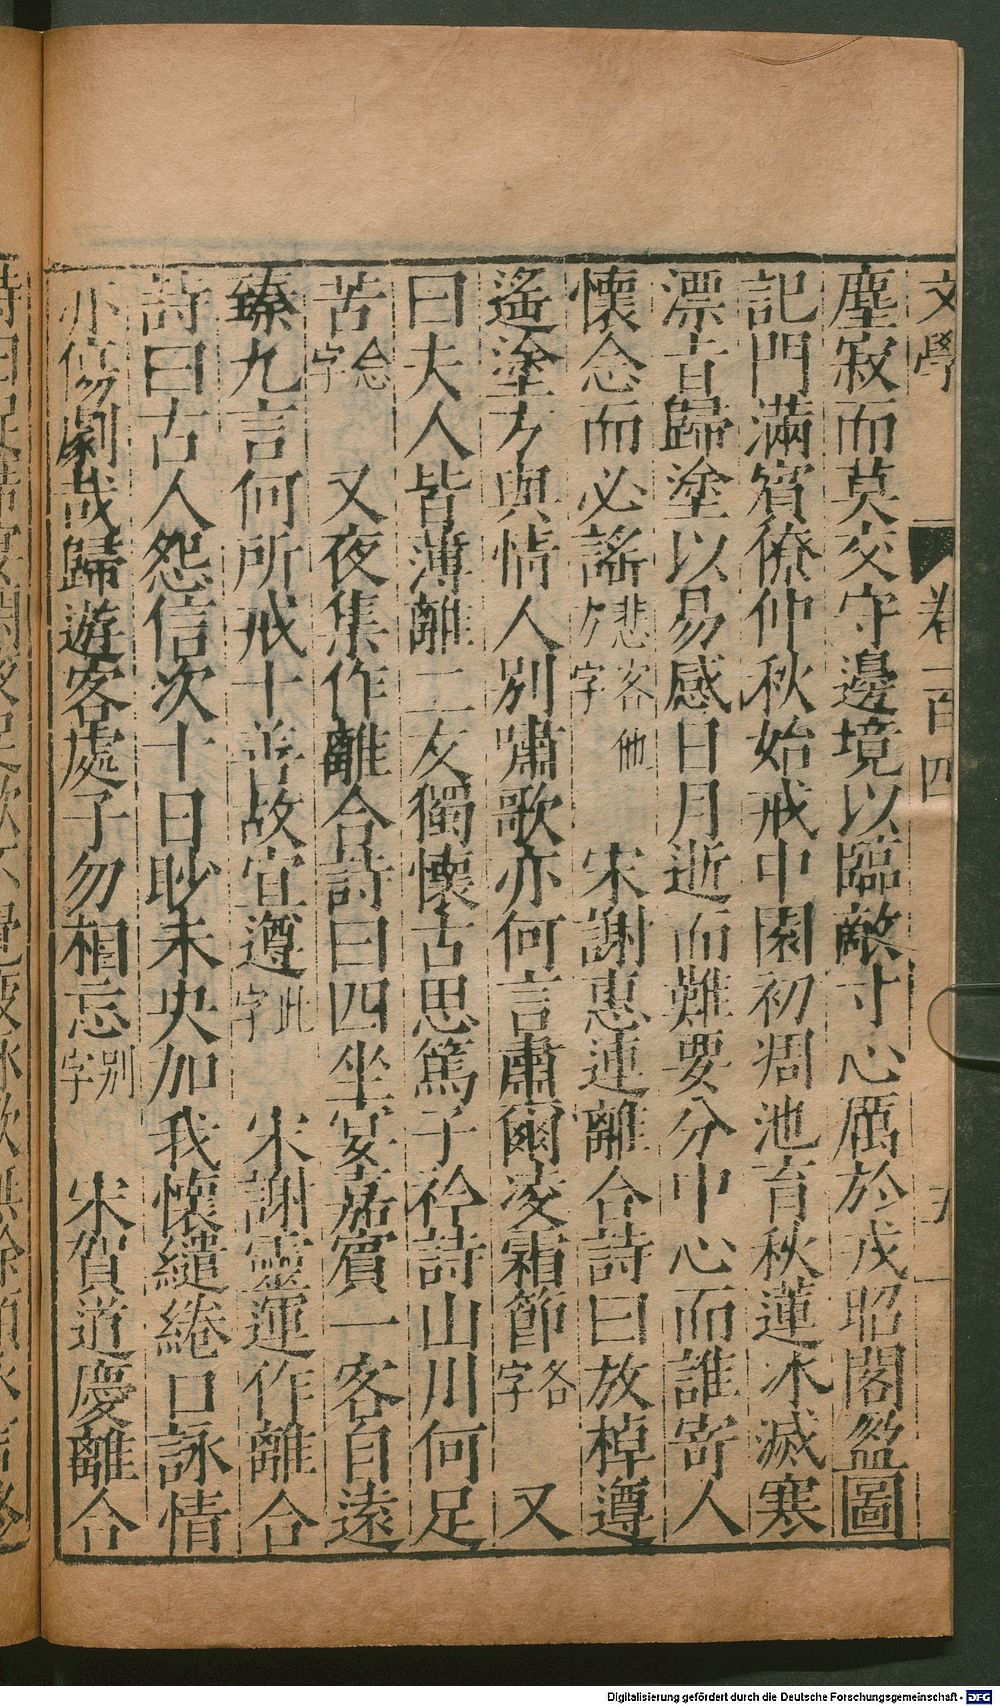 文學
卷一百四
九
塵寂而莫交守邊境以臨敵寸心厲於戎昭閣盈圖
記門滿賓僚仲秋始戒中園初凋池育秋蓮水滅寒
漂旨歸塗以易感日月逝而難要分中心而誰寄人
懷念而必謠悲客他方字 宋謝惠連離合詩曰放棹遵
遙塗方與情人別嘯歌亦何言肅爾凌霜節各字 又
曰夫人皆薄離二友獨懷古思篤子衿詩山川何足
苦念字 又夜集作離合詩曰四坐宴嘉賓一客自遠
臻九言何所戒十善故宜遵此字 宋謝靈運作離合
詩曰古人怨信次十日眇未央加我懷繾綣口詠情
亦傷劇哉歸遊客處子勿相忘別字 宋賀道慶離合
Digitalisierung gefördert durch die Deutsche Forschungsgemeinschaft - DFG